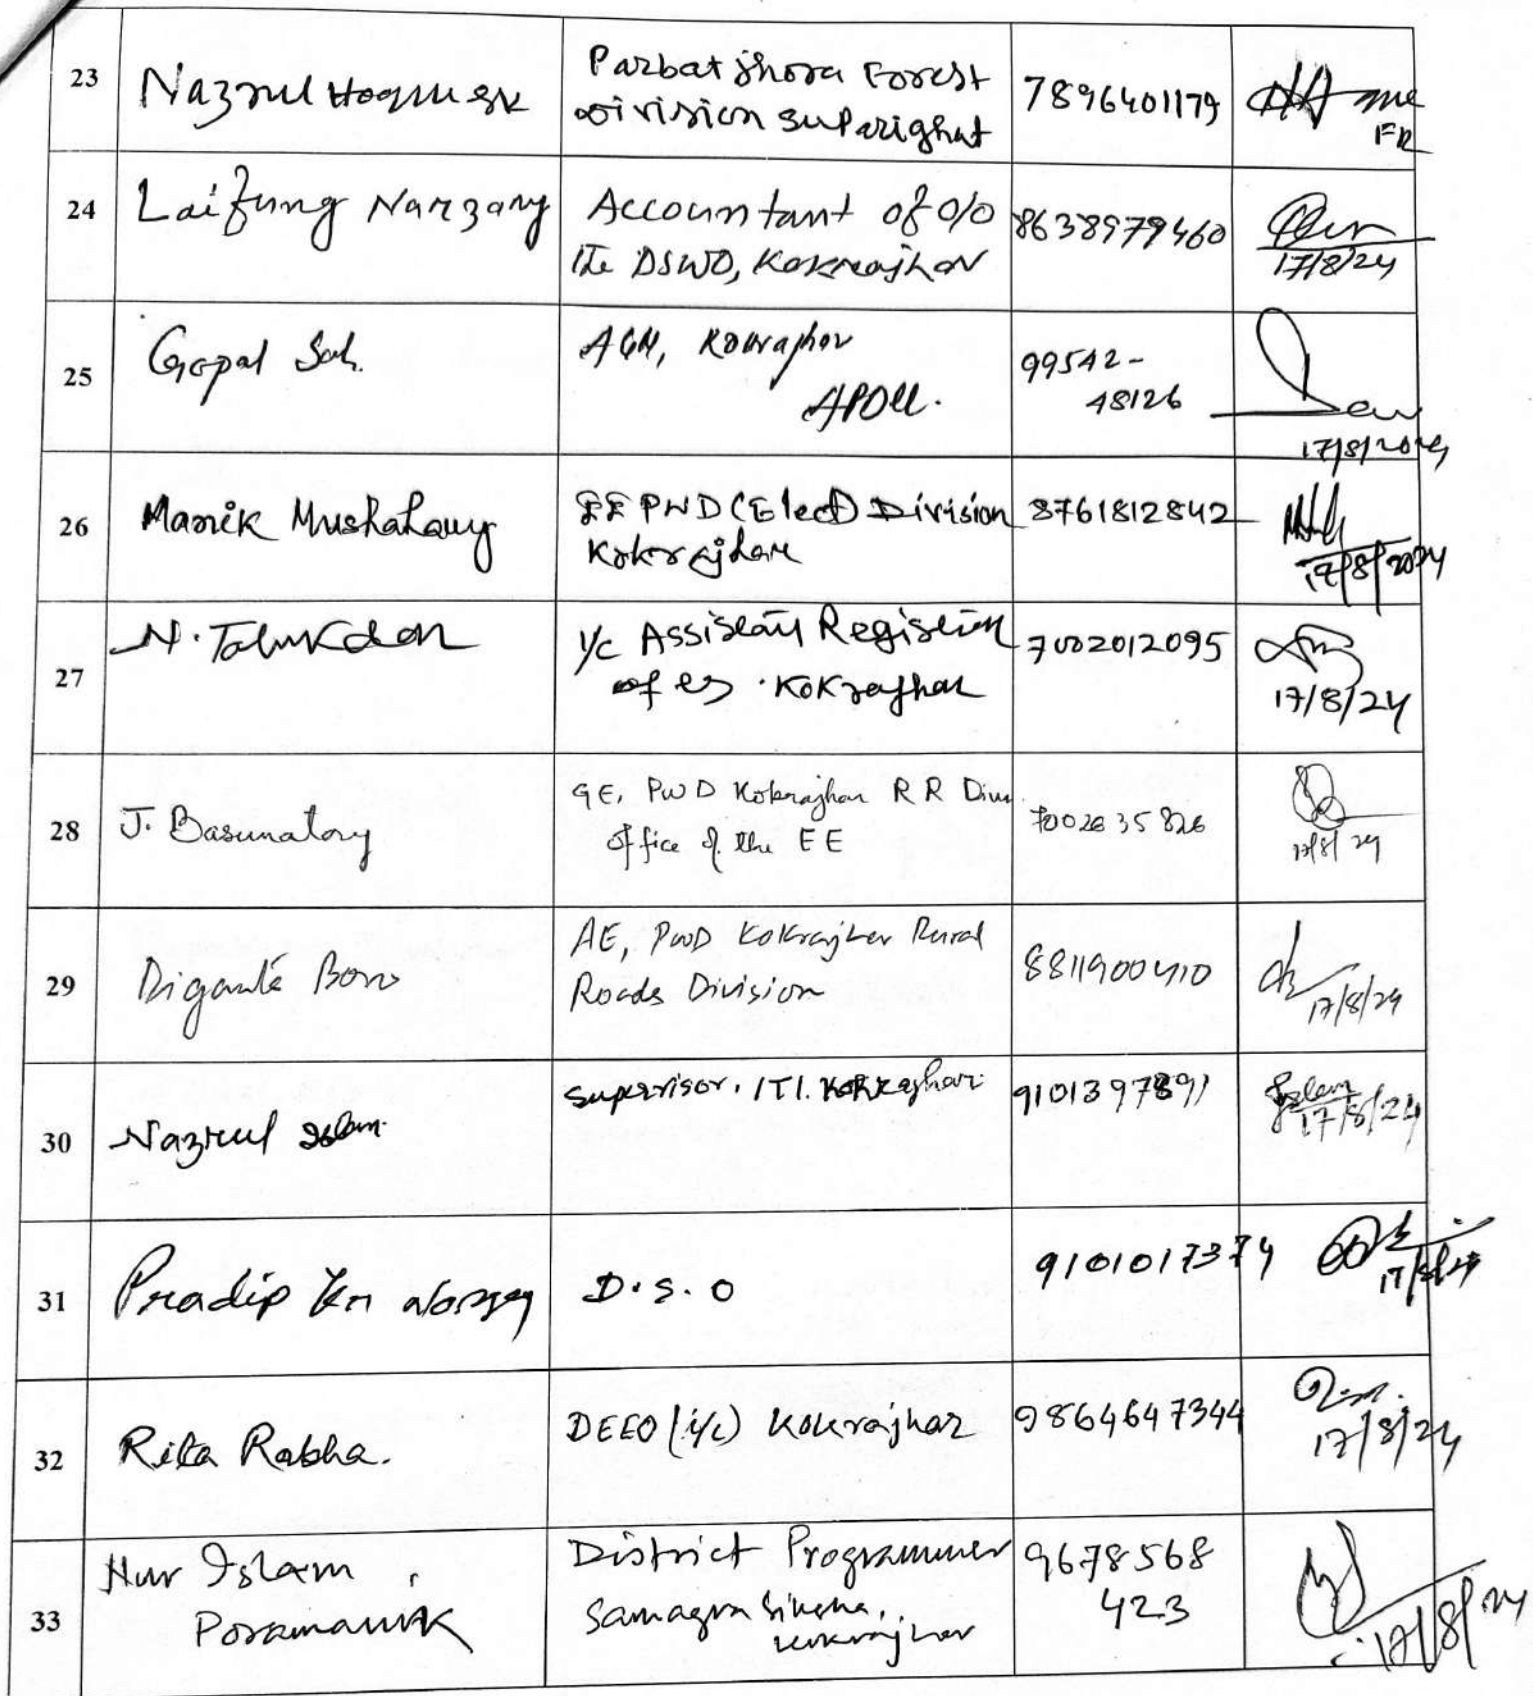 23
Nazrul Hoque Sk
Parbatjhora Forest
Division Suparighat
7896401179
FR
24
Laifung Narzary
Accountant of O/O
The DSWO, Kokrajhar
8638979460
17/8/24
25
Gopal Sah.
AGM, Kokrajhar
APDCL.
99542-
48126
17/8/2024
26
Manik Mushahary
EE PWD (Elect) Division
Kokrajhar
8761812842
17/8/2024
27
N. Talukdar
I/c Assistant Registrar
of cs. Kokrajhar
7002012095
17/8/24
28
J. Basumatary
GE, PWD Kokrajhar R R Divn
Office of the EE
7002635826
17/8/24
29
Diganta Boro
AE, PWD Kokrajhar Rural
Roads Division
8811900410
17/8/24
30
Nazrul Islam.
Supervisor. ITI. Kokrajhar.
9101397891
Islam
17/8/24
31
Pradip Kr Narzary
D.S.O
9101017374
17/8/24
32
Rita Rabha.
DEEO (i/c) Kokrajhar
9864647344
17/8/24
33
Nur Islam
Poramanik
District Programmer
Samagra Siksha,
Kokrajhar
9678568
423
17/8/24